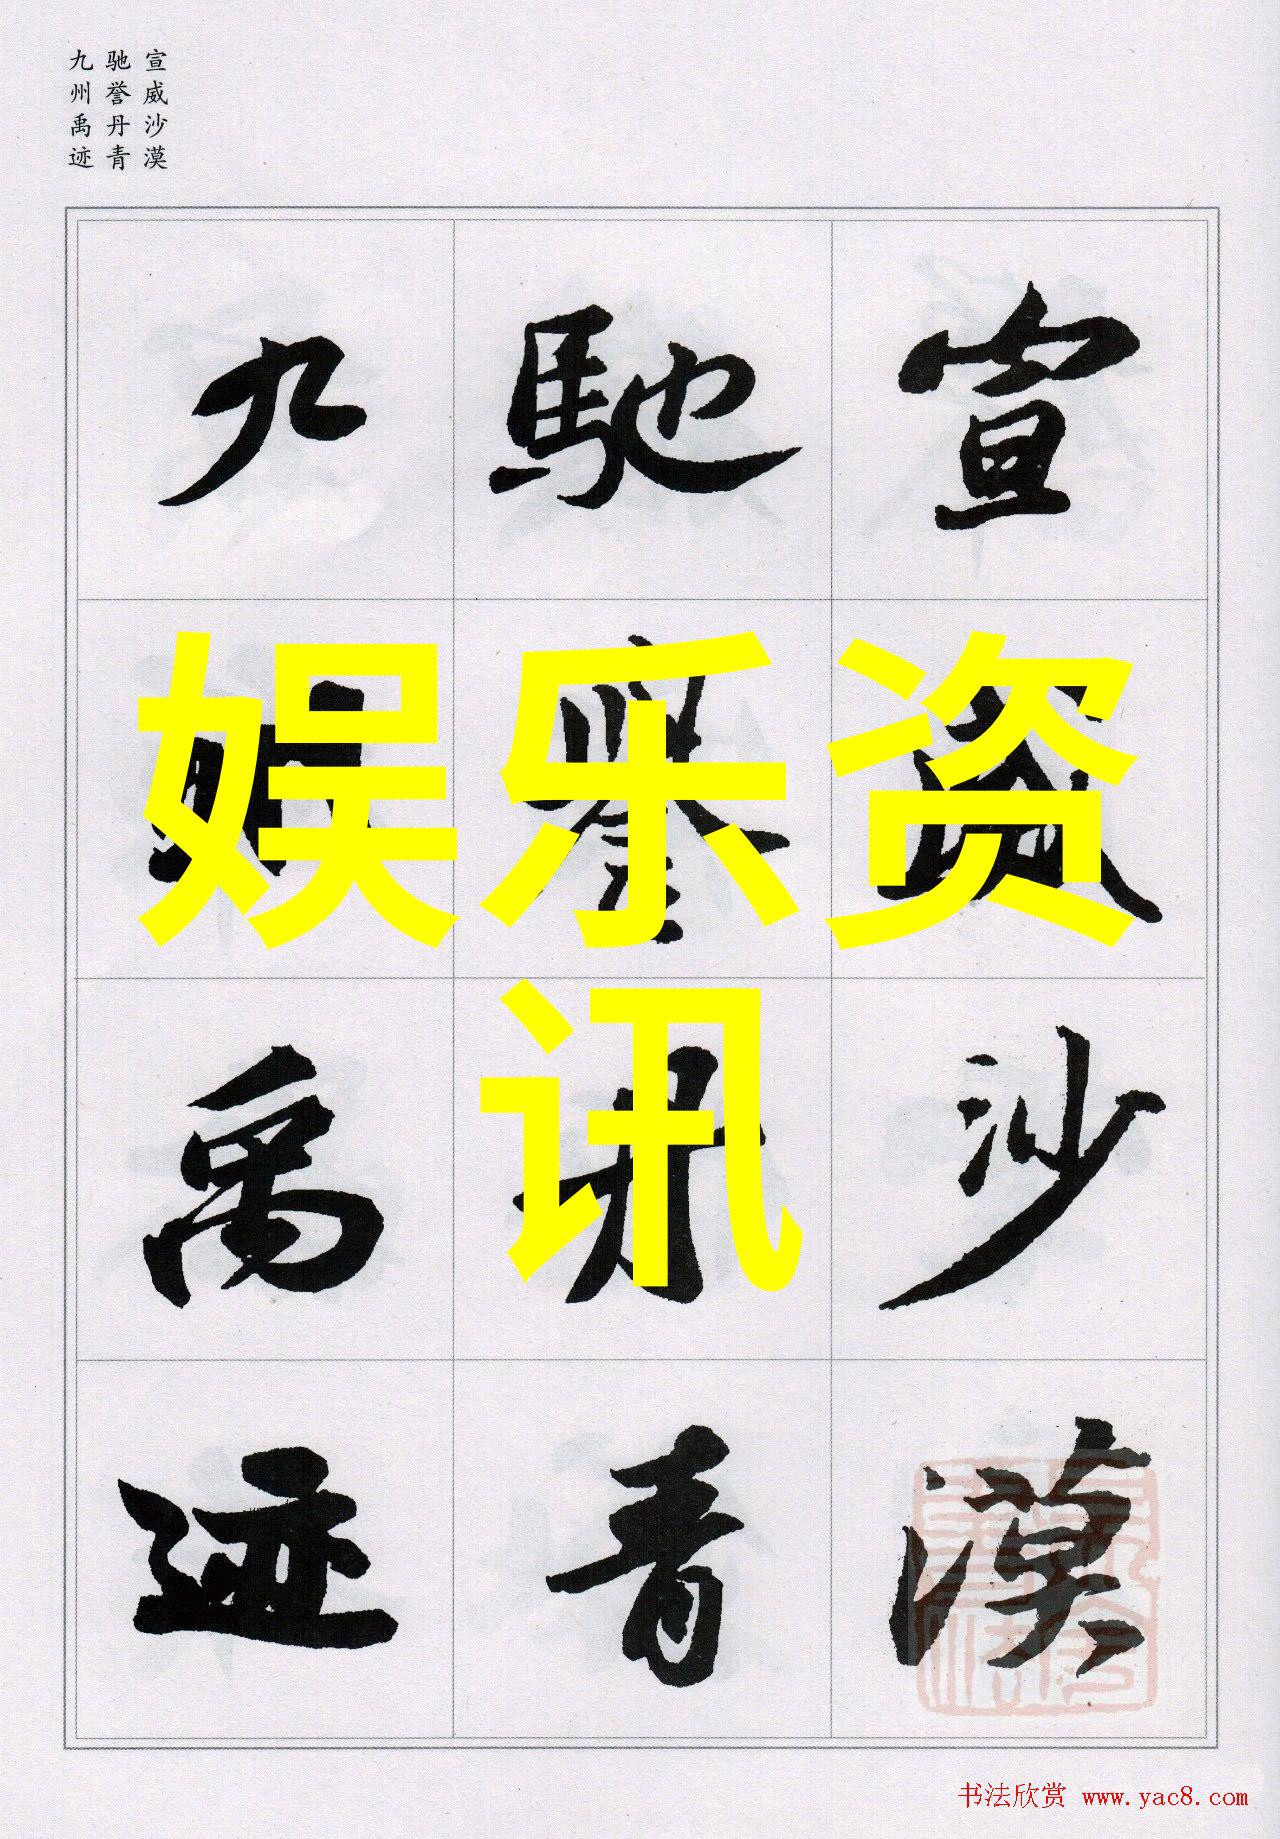 宣威沙漠
驰誉丹青
九州禹迹
宣威沙漠
馳譽丹青
九州禹迹
娱乐资
讯
书法欣赏 www.yac8.com